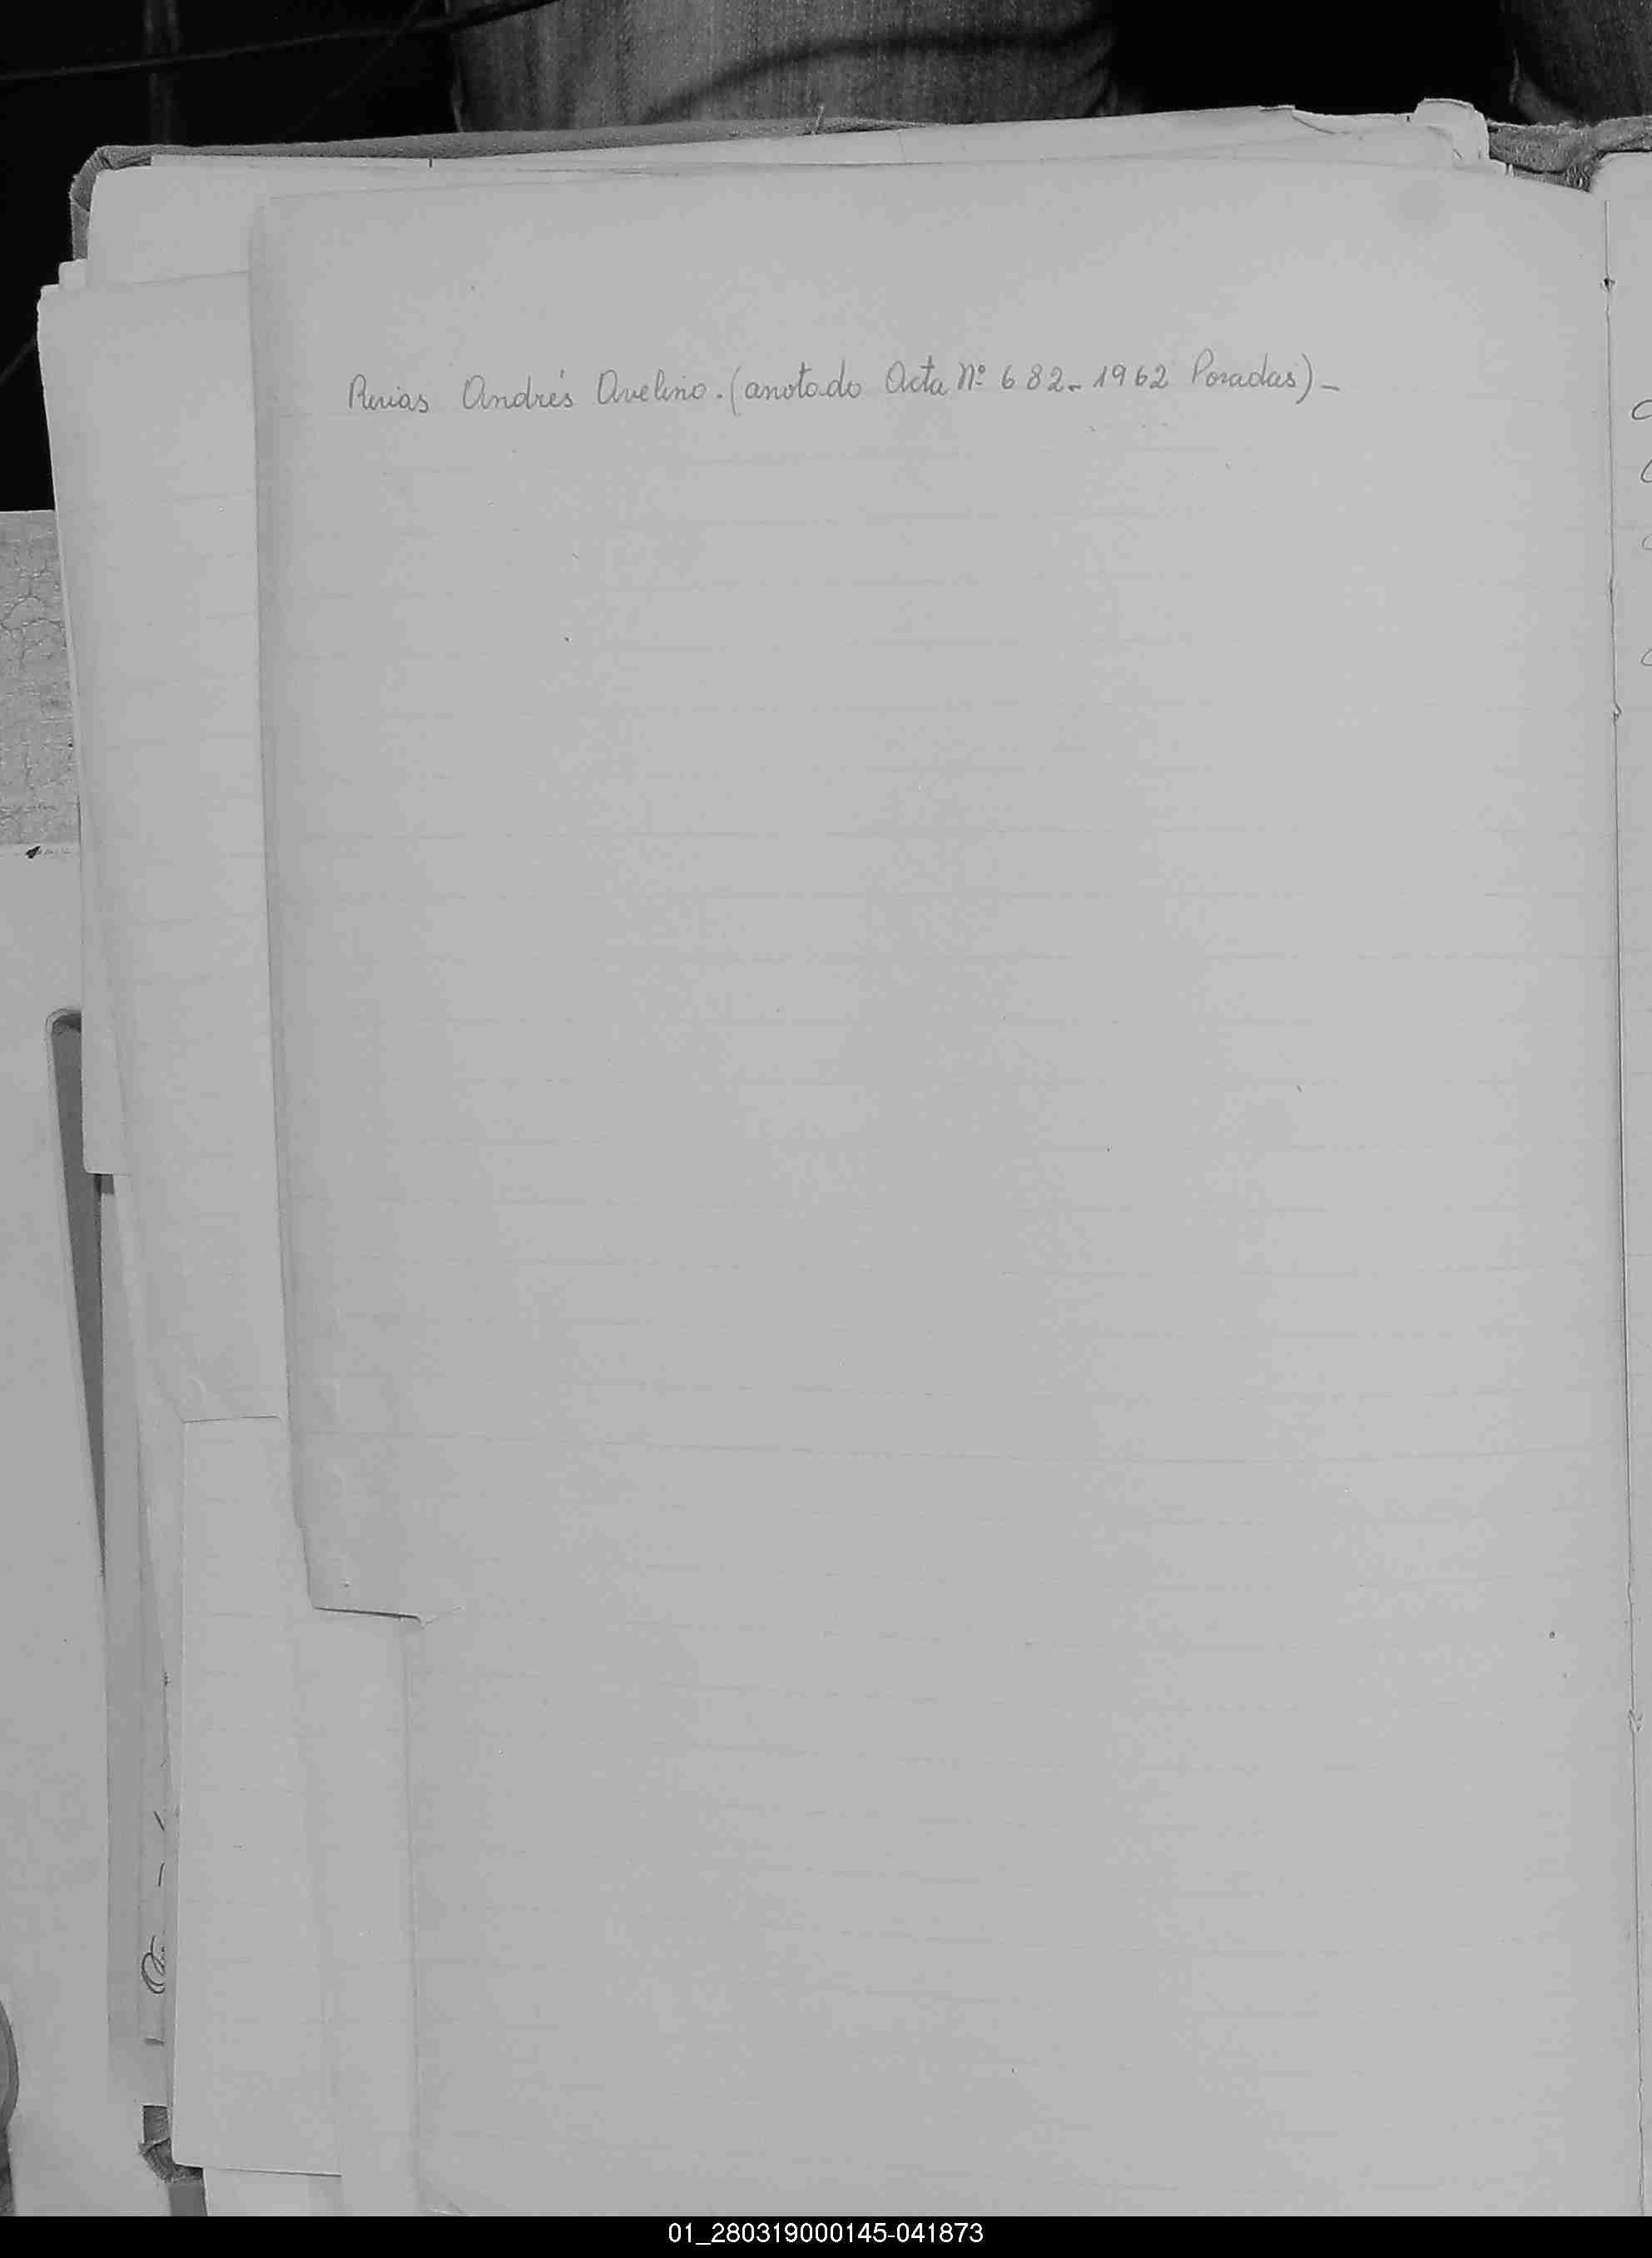 Andrés Avelino. (anotado Acta Nº 682-1962 Posadas)-
01_280319000145-041873